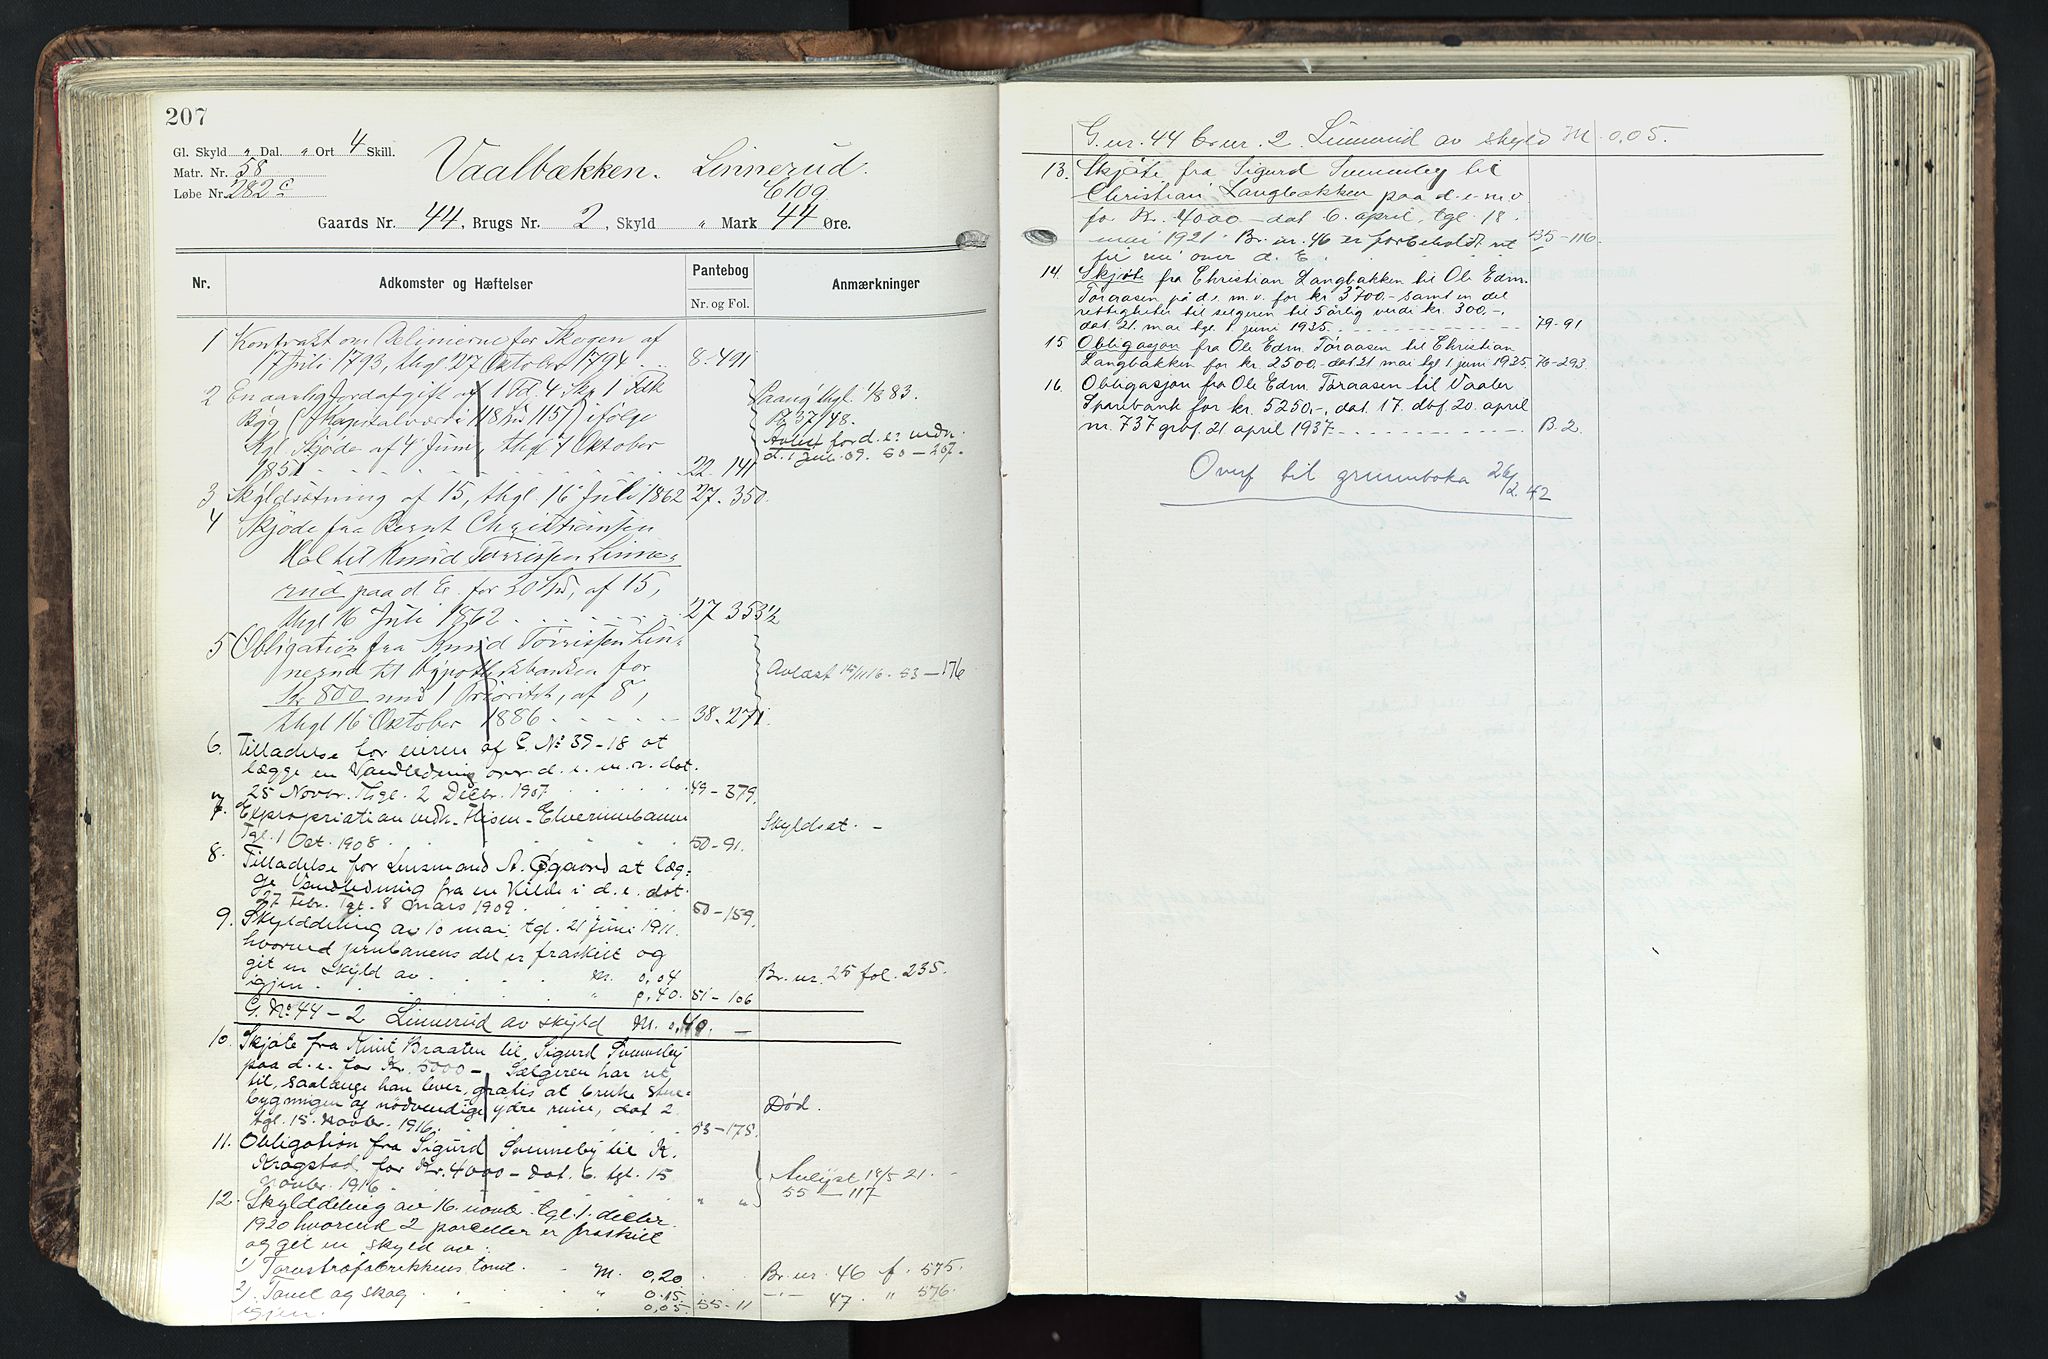 207
Gl. Skyld „ Dal. „ Ort 4 Skill.
Matr. Nr. 58
Løbe Nr. 282 c
Vaalbækken. Linnerud.
Gaards Nr. 44, Brugs Nr. 2, Skyld „ Mark 44 Øre.
Nr. Adkomster og Hæftelser Pantebog Anmærkninger
Nr. og Fol.
1 Kontrakt om Delinierne for Skogen af
17 Juli 1793, thgl. 27 Oktober 1794 8. 491
2 En aarlig Jordafgift af 1 Td. 4 Skp 1 Fdk
Byg (Kapitalværdi 118 Spd 115 f) ifølge
Kgl. Skjøde af 4 Juni, thgl 7 Oktober
1851 22. 141
Paang thgl. 1/8 83.
B 37/48.
Avløst for d. e. vedk.
d. 1 Juli 09. 50 – 267.
3 Skyldsætning af 15, thgl. 16 Juli 1862 27. 350.
4 Skjøde fra Bernt Christiansen
Hol til Knud Torrissen Linne-
rud paa d. E. for 20 Spd, af 15,
thgl 16 Juli 1862 27 353 1/2
5 Obligation fra Knud Torrissen Lin-
nerud til Hypothekbanken for
Kr 800 med 1 Prioritet, af 8,
thgl 16 Oktober 1886 38. 271
Avlæst 15/11 16. 53 – 176
6. Tilladelse for eieren af G. No 39-18 at
lægge en Vandledning over d. e. m. v. dat.
25 Novbr. Thgl. 2 Decbr. 1907 49 – 379.
7. Expropriation vedk. Flisen-Elverumbanen
Tgl. 1 Oct. 1908 50 – 91. Skyldsat. –
8. Tilladelse for Lensmand A. Øgaard at læg-
ge Vandledning fra en Kilde i d. e. dat.
27 Febr. Tgl. 8 mars 1909 50 – 159.
9. Skylddeling av 10 mai, tgl. 21 Juni 1911.
hvorved jernbanens del er fraskilt og
git en skyld av M. 0,04 Br. nr. 25 fol. 235.
igjen „ 0,40. 51 – 106
G. No. 44 – 2 Linnerud av skyld M. 0,40. –
10. Skjøte fra Knut Braaten til Sigurd Svenneby
paa d. e. for Kr. 5000 – Sælgeren har ret
til, saalænge han lever, gratis at bruke stue-
bygningen og nødvendige ydre rum, dat 2
tgl. 15. Novbr. 1916. 53 – 175. Død.
11. Obligation fra Sigurd Svenneby til K.
Kragstad for Kr. 4000 – dat. 6. tgl. 15
Novbr. 1916 „ „
Avlyst 18/5 21. –
55 – 117
12. Skylddeling av 16. novbr. tgl. 1. decbr.
1920 hvorved 2 parceller er fraskilt
og git en skyld av:
1) Torvstrøfabrikkens tomt. M. 0,20 Br. nr. 46 f. 575.
2) Tomt og skog „ 0.15. –„– 47. „ 576.
igjen. „ 0,05. 55 – 11
G. nr. 44 br. nr. 2. Linnerud av skyld M. 0,05.
13. Skjøte fra Sigurd Svenneby til
Christian Langbækken paa d. e. m. v
for Kr. 4000 – dat 6. april, tgl. 18.
mai 1921. Br. nr. 46 er forbeholdt ret
til vei over d. E. 55 – 116.
14. Skjøte fra Christian Langbakken til Ole Edm.
Toraasen på d. e. m. v. for kr 3700.- samt en del
rettigheter til selgeren til 5 årlig verdi kr. 300,-,
dat. 21. mai tgl. 1. juni 1935. 79 – 91
15 Obligasjon fra Ole Edm. Toraasen til Christian
Langbakken for kr. 2500.- dat 21 mai tgl 1. juni 1935 76 – 293.
16. Obligasjon fra Ole Edm. Toraasen til Vaaler
Sparebank for kr. 5250,-, dat. 17. dbf. 20. april
nr. 737 grbf. 21. april 1937. B. 2.
Overf til grunnboka 26/2 42